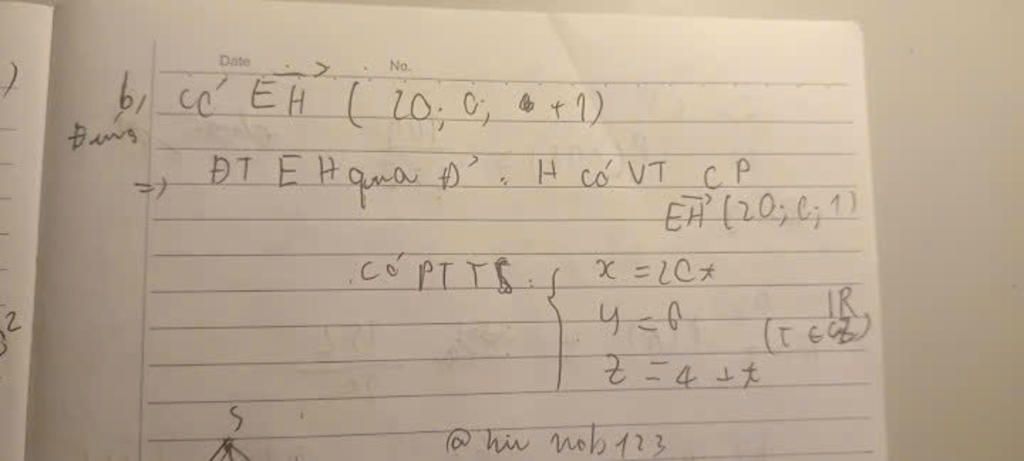 Date No.
b, Có EH ( 20; 0; +1)
Đúng
=> ĐT EH qua Đ' : H có VT CP
EH (20; 0; 1)
Có PTTS : x = 20t
y = 0
IR
(T ∈ )
z = 4 + t
S
@ hiu nob 123